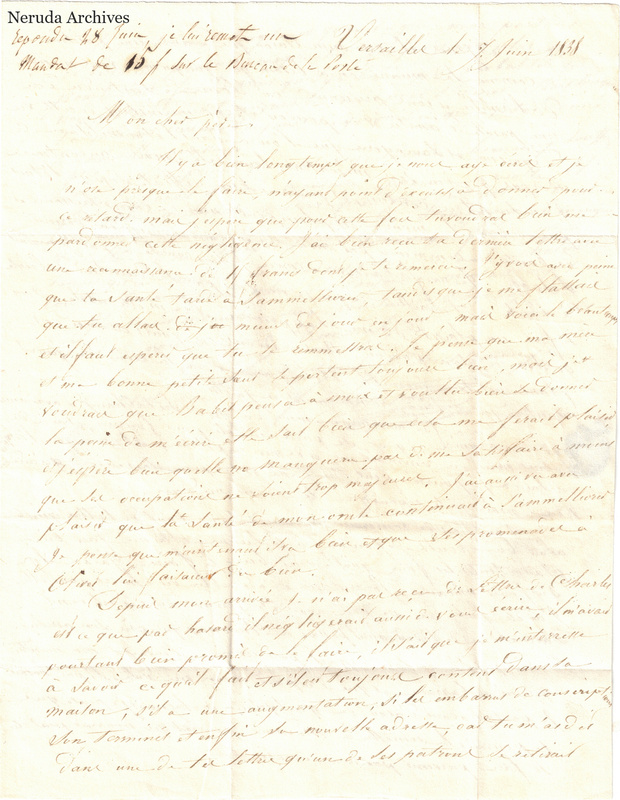 Neruda Archives
Repondu 28 Juin, je lui remet un
Mandat de 15 f sur le Bureau de la Poste
Versailles le 7 Juin 1831
Mon cher père
Il y a bien longtemps que je nous aye écrit et je
n'ose presque le faire, n'ayant point d'excuse à donner pour
ce retard mais j'espère que pour cette fois tu voudras bien me
pardonner cette négligence. J'ai bien recu ta dernière lettre avec
une reconnaissance de 15 francs dont je te remercie. J'y vois avec peine
que ta santé tarde à s'ammelliorer, tandis que je me flattais
que tu allais de mieux de jour en jour, mais voici le beau temps
et il faut espérer que tu te remmettras. Je pense que ma mère
et ma bonne petite sœur se portent toujours bien, mais je
voudrais que Babet pensa à moi et voullu bien se donner
la peine de m'écrire elle sait bien que cela me ferait plaisir
et j'espère bien quelle ne manquera pas de me satisfaire à moins
que ses occupations ne soient trop majeures. J'ai aussi vu avec
plaisir que la santé de mon oncle continuait à s'ammelliorer
Je pense que maintenant il va bien et que ses promenades à
lui faisaient du bien.
Depuis mon arrivée je n'ai pas reçu de lettre de Charles
est ce que par hasard il négligerait aussi de vous écrire, il m'avait
pourtant bien promis de le faire, il sait que je m'interresse
à savoir ce qu'il fait et s'il est toujours content dans sa
maison, s'il a une augmentation, si les embarras de conscription
son terminés et enfin sa nouvelle adresse, car tu m'as dis
dans une de tes lettres qu'un de ses patrons se retirait